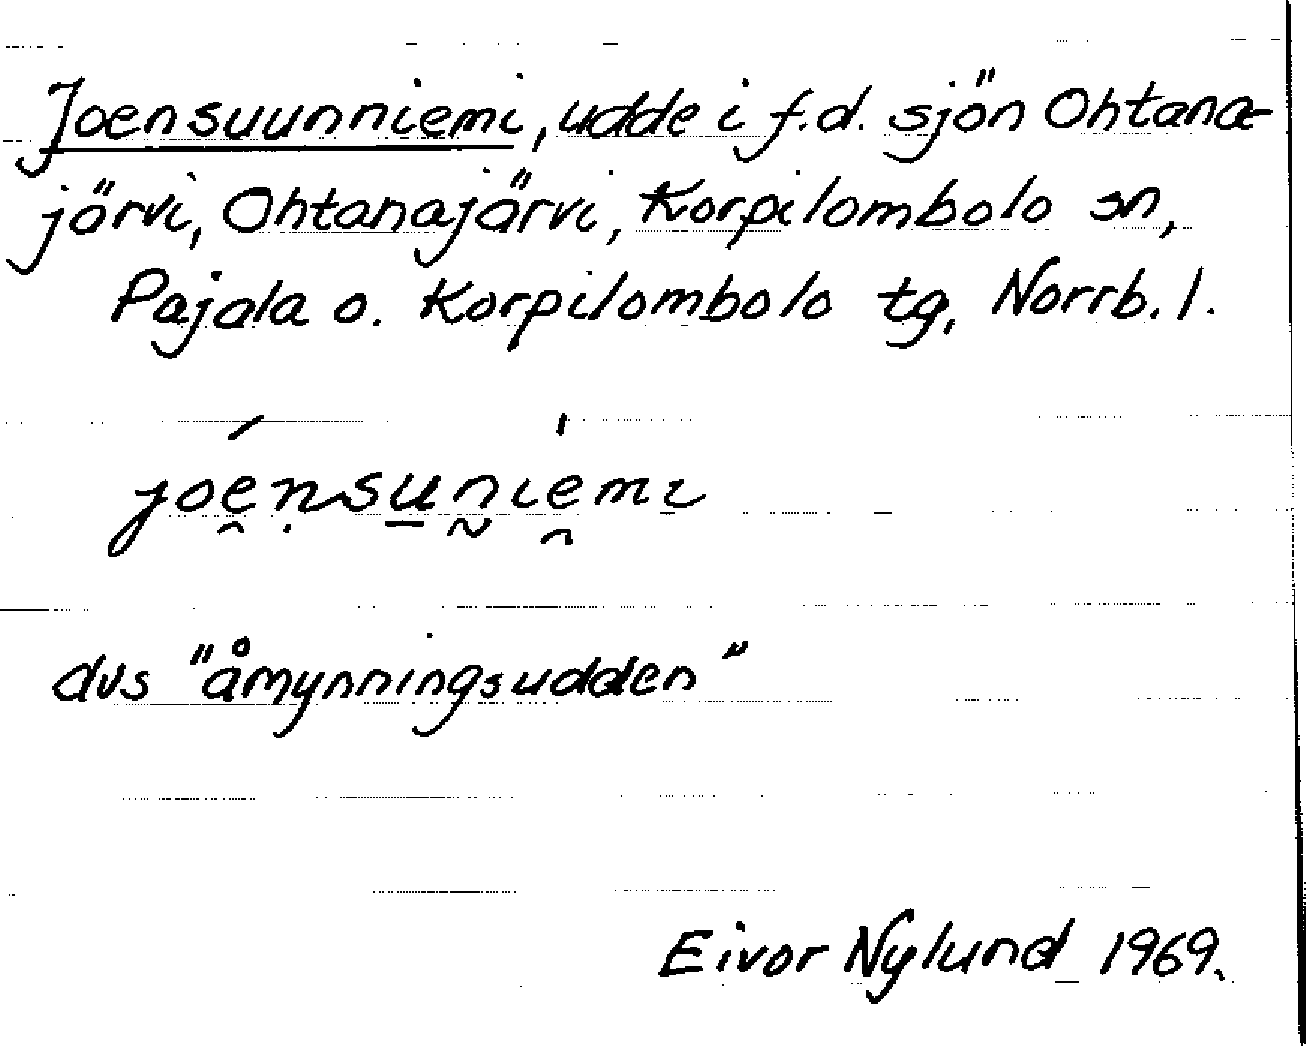 Joensuunniemi, udde i f.d. sjön Ohtana-
järvi, Ohtanajärvi, Korpilombolo sn,
Pajala o. Korpilombolo tg, Norrb. l.
joe̯ńṇsu̱ṋie̯mi
dvs "åmynningsudden"
Eivor Nylund 1969.